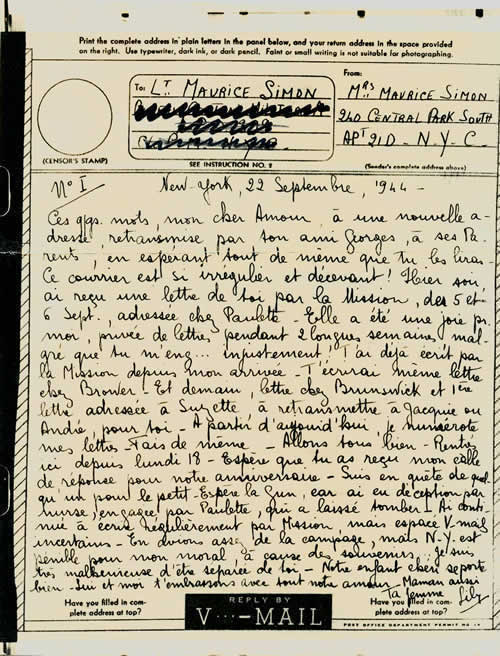 Print the complete address in plain letters in the panel below, and your return address in the space provided
on the right. Use typewriter, dark ink, or dark pencil. Faint or small writing is not suitable for photographing.
To: LT. MAURICE SIMON
From:
MRS MAURICE SIMON
240 CENTRAL PARK SOUTH
APT 21D - N-Y-C-
(CENSOR'S STAMP)
SEE INSTRUCTION NO. 2
(Sender's complete address above)
No I
New-York, 22 Septembre, 1944 -
Ces qqs. mots, mon cher Amour, à une nouvelle a-
dresse, retransmise par ton ami Georges, à ses Pa-
rents, en espérant tout de même que tu les liras-
Ce courrier est si irrégulier et décevant! Hier soir,
ai reçu une lettre de toi par la Mission, des 5 et
6 Sept., adressée chez Paulette - Elle a été une joie pr
moi, privée de lettres pendant 2 longues semaines, mal-
gré que tu m'eng... injustement! T'ai déjà écrit par
la Mission depuis mon arrivée - T'écrirai même lettre
chez Brower - Et demain, lettre chez Brunswick et 1ère
lettre adressée à Suzette à retransmettre à Jacquie ou
André, pour toi - A partir d'aujourd'hui, je numérote
mes lettres - Fais de même - Allons tous bien - Rentrés
ici depuis lundi 18 - Espère que tu as reçu mon câble
de réponse pour notre anniversaire - Suis en quête de quel-
qu'un pour le petit - Espère la car ai eu déception par
nurse, engagée par Paulette, qui a laissé tomber! Ai conti-
nué à écrire régulièrement par Mission, mais espace V-mail
incertains - En avions assez de la campagne, mais N-Y- est
pénible pour mon moral, à cause des souvenirs - Je suis
très malheureuse d'être séparée de toi - Notre enfant chéri se porte
bien - Lui et moi t'embrassons avec tout notre amour - Maman aussi
Ta femme Lily
Have you filled in com-
plete address at top?
REPLY BY
V···–MAIL
Have you filled in com-
plete address at top?
POST OFFICE DEPARTMENT PERMIT NO.